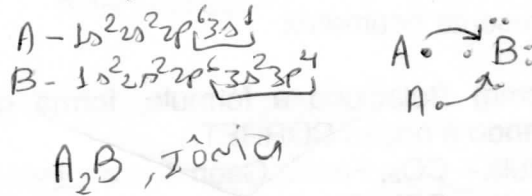 A - 1s²2s²2p⁶3s¹
B - 1s²2s²2p⁶3s²3p⁴
A B
A
A₂B, Iônica